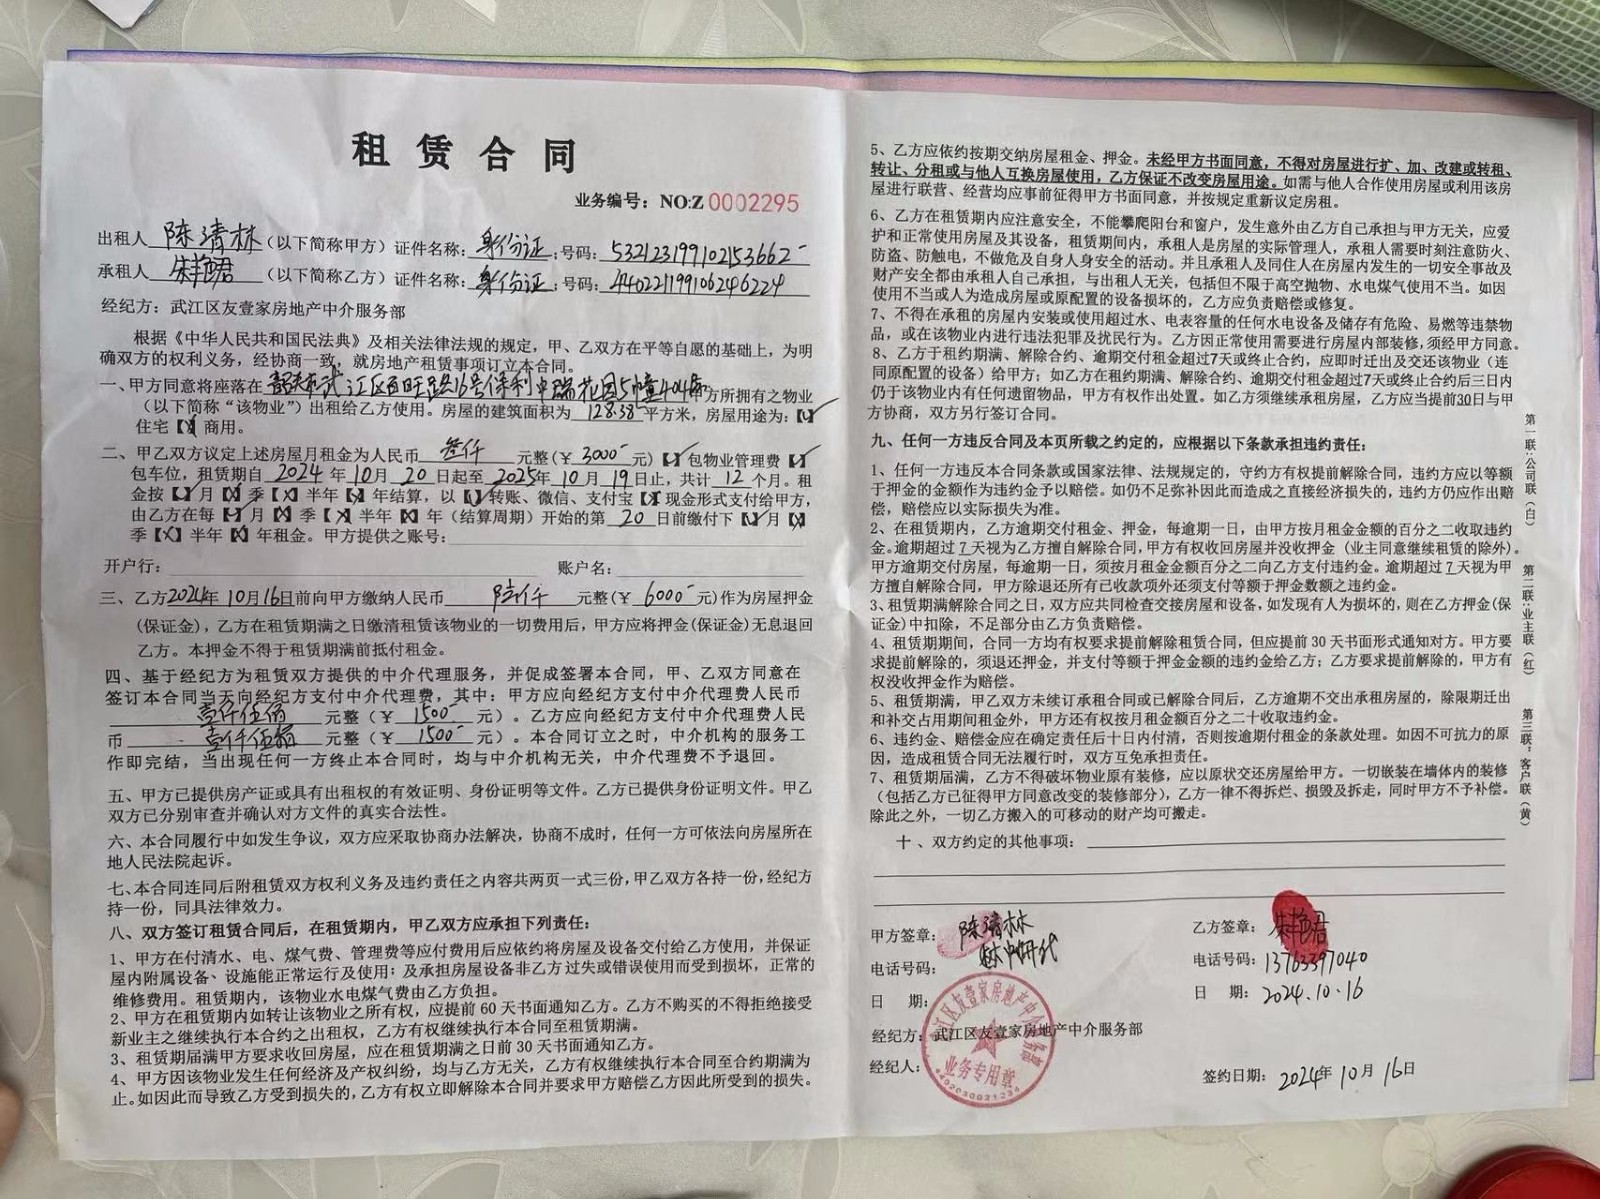 租赁合同
业务编号：NO:Z 0002295
出租人 陈清林 （以下简称甲方）证件名称：身份证；号码：532123199102153662
承租人 朱艳君 （以下简称乙方）证件名称：身份证；号码：440221199106246224
经纪方：武江区友壹家房地产中介服务部
根据《中华人民共和国民法典》及相关法律法规的规定，甲、乙双方在平等自愿的基础上，为明
确双方的权利义务，经协商一致，就房地产租赁事项订立本合同。
一、甲方同意将座落在 韶关市武江区西旺路16号保利中瑞花园5幢404房 方所拥有之物业
（以下简称“该物业”）出租给乙方使用。房屋的建筑面积为 128.38 平方米，房屋用途为：【✓】
住宅【】商用。
二、甲乙双方议定上述房屋月租金为人民币 叁仟 元整（￥ 3000 元）【✓】包物业管理费【✓】
包车位，租赁期自 2024 年 10 月 20 日起至 2025 年 10 月 19 日止，共计 12 个月。租
金按【✓】月【X】季【X】半年【X】年结算，以【✓】转账、微信、支付宝【X】现金形式支付给甲方，
由乙方在每【✓】月【X】季【X】半年【X】年（结算周期）开始的第 20 日前缴付下【✓】月【X】
季【X】半年【X】年租金。甲方提供之账号：
开户行： 账户名：
三、乙方 2024年 10月16日前向甲方缴纳人民币 陆仟 元整（￥ 6000 元）作为房屋押金
（保证金），乙方在租赁期满之日缴清租赁该物业的一切费用后，甲方应将押金（保证金）无息退回
乙方。本押金不得于租赁期满前抵付租金。
四、基于经纪方为租赁双方提供的中介代理服务，并促成签署本合同，甲、乙双方同意在
签订本合同当天向经纪方支付中介代理费，其中：甲方应向经纪方支付中介代理费人民币
壹仟伍佰 元整（￥ 1500 元）。乙方应向经纪方支付中介代理费人民
币 壹仟伍佰 元整（￥ 1500 元）。本合同订立之时，中介机构的服务工
作即完结，当出现任何一方终止本合同时，均与中介机构无关，中介代理费不予退回。
五、甲方已提供房产证或具有出租权的有效证明、身份证明等文件。乙方已提供身份证明文件。甲乙
双方已分别审查并确认对方文件的真实合法性。
六、本合同履行中如发生争议，双方应采取协商办法解决，协商不成时，任何一方可依法向房屋所在
地人民法院起诉。
七、本合同连同后附租赁双方权利义务及违约责任之内容共两页一式三份，甲乙双方各持一份，经纪方
持一份，同具法律效力。
八、双方签订租赁合同后，在租赁期内，甲乙双方应承担下列责任：
1、甲方在付清水、电、煤气费、管理费等应付费用后应依约将房屋及设备交付给乙方使用，并保证
屋内附属设备、设施能正常运行及使用；及承担房屋设备非乙方过失或错误使用而受到损坏，正常的
维修费用。租赁期内，该物业水电煤气费由乙方负担。
2、甲方在租赁期内如转让该物业之所有权，应提前 60 天书面通知乙方。乙方不购买的不得拒绝接受
新业主之继续执行本合约之出租权，乙方有权继续执行本合同至租赁期满。
3、租赁期届满甲方要求收回房屋，应在租赁期满之日前 30 天书面通知乙方。
4、甲方因该物业发生任何经济及产权纠纷，均与乙方无关，乙方有权继续执行本合同至合约期满为
止。如因此而导致乙方受到损失的，乙方有权立即解除本合同并要求甲方赔偿乙方因此所受到的损失。
5、乙方应依约按期交纳房屋租金、押金。未经甲方书面同意，不得对房屋进行扩、加、改建或转租、
转让、分租或与他人互换房屋使用，乙方保证不改变房屋用途。如需与他人合作使用房屋或利用该房
屋进行联营、经营均应事前征得甲方书面同意，并按规定重新议定房租。
6、乙方在租赁期内应注意安全，不能攀爬阳台和窗户，发生意外由乙方自己承担与甲方无关，应爱
护和正常使用房屋及其设备，租赁期间内，承租人是房屋的实际管理人，承租人需要时刻注意防火、
防盗、防触电，不做危及自身人身安全的活动。并且承租人及同住人在房屋内发生的一切安全事故及
财产安全都由承租人自己承担，与出租人无关，包括但不限于高空抛物、水电煤气使用不当。如因
使用不当或人为造成房屋或原配置的设备损坏的，乙方应负责赔偿或修复。
7、不得在承租的房屋内安装或使用超过水、电表容量的任何水电设备及储存有危险、易燃等违禁物
品，或在该物业内进行违法犯罪及扰民行为。乙方因正常使用需要进行房屋内部装修，须经甲方同意。
8、乙方于租约期满、解除合约、逾期交付租金超过7天或终止合约，应即时迁出及交还该物业（连
同原配置的设备）给甲方；如乙方在租约期满、解除合约、逾期交付租金超过7天或终止合约后三日内
仍于该物业内有任何遗留物品，甲方有权作出处置。如乙方须继续承租房屋，乙方应当提前30日与甲
方协商，双方另行签订合同。
九、任何一方违反合同及本页所载之约定的，应根据以下条款承担违约责任：
1、任何一方违反本合同条款或国家法律、法规规定的，守约方有权提前解除合同，违约方应以等额
于押金的金额作为违约金予以赔偿。如仍不足弥补因此而造成之直接经济损失的，违约方仍应作出赔
偿，赔偿应以实际损失为准。
2、在租赁期内，乙方逾期交付租金、押金，每逾期一日，由甲方按月租金金额的百分之二收取违约
金。逾期超过 7 天视为乙方擅自解除合同，甲方有权收回房屋并没收押金（业主同意继续租赁的除外）。
甲方逾期交付房屋，每逾期一日，须按月租金金额百分之二向乙方支付违约金。逾期超过 7 天视为甲
方擅自解除合同，甲方除退还所有已收款项外还须支付等额于押金数额之违约金。
3、租赁期满解除合同之日，双方应共同检查交接房屋和设备，如发现有人为损坏的，则在乙方押金（保
证金）中扣除，不足部分由乙方负责赔偿。
4、租赁期期间，合同一方均有权要求提前解除租赁合同，但应提前 30 天书面形式通知对方。甲方要
求提前解除的，须退还押金，并支付等额于押金金额的违约金给乙方；乙方要求提前解除的，甲方有
权没收押金作为赔偿。
5、租赁期满，甲乙双方未续订承租合同或已解除合同后，乙方逾期不交出承租房屋的，除限期迁出
和补交占用期间租金外，甲方还有权按月租金额百分之二十收取违约金。
6、违约金、赔偿金应在确定责任后十日内付清，否则按逾期付租金的条款处理。如因不可抗力的原
因，造成租赁合同无法履行时，双方互免承担责任。
7、租赁期届满，乙方不得破坏物业原有装修，应以原状交还房屋给甲方。一切嵌装在墙体内的装修
（包括乙方已征得甲方同意改变的装修部分），乙方一律不得拆烂、损毁及拆走，同时甲方不予补偿。
除此之外，一切乙方搬入的可移动的财产均可搬走。
十、双方约定的其他事项：
甲方签章： 陈清林
电话号码：
日 期：
经纪方：武江区友壹家房地产中介服务部
经纪人：
乙方签章： 朱艳君
电话号码：13763397040
日 期：2024.10.16
签约日期：2024年 10月 16日
武江区友壹家房地产中介服务部
业务专用章
第一联：公司联（白）
第二联：业主联（红）
第三联：客户联（黄）